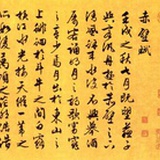 赤壁賦
壬戌之秋七月既望蘇子
與客泛舟遊於赤壁之下
清風徐來水波不興舉酒
屬客誦明月之詩歌窈窕
之章少焉月出於東山之
上徘徊於斗牛之間白露
橫江水光接天縱一葦之
所如凌萬頃之茫然